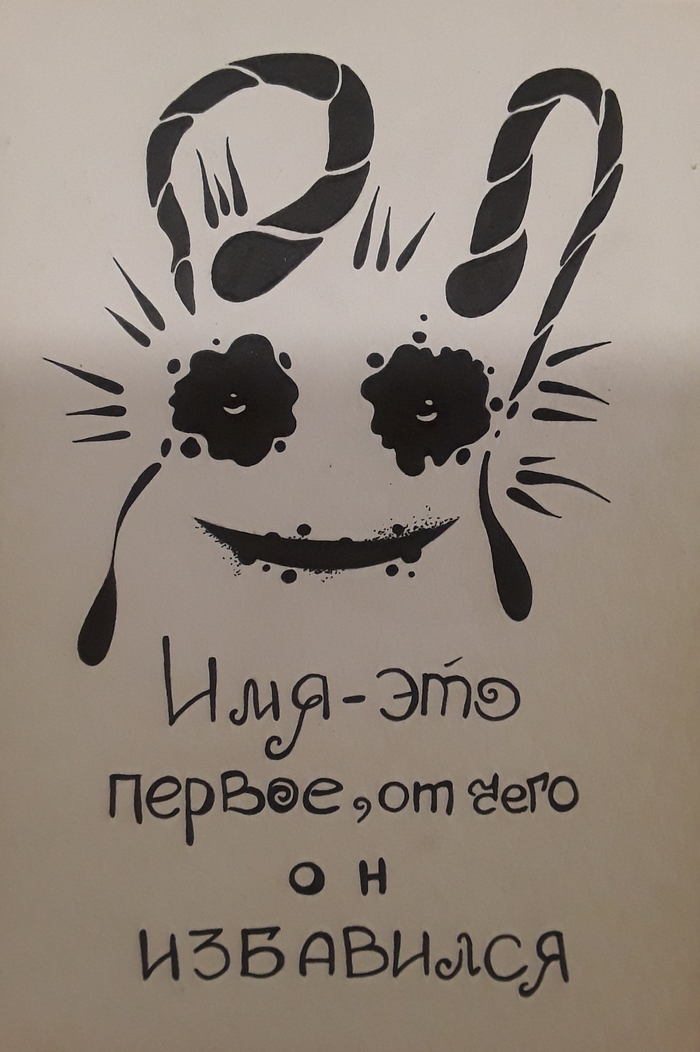 Имя-это
первое, от чего
он
ИЗБАВИЛСЯ